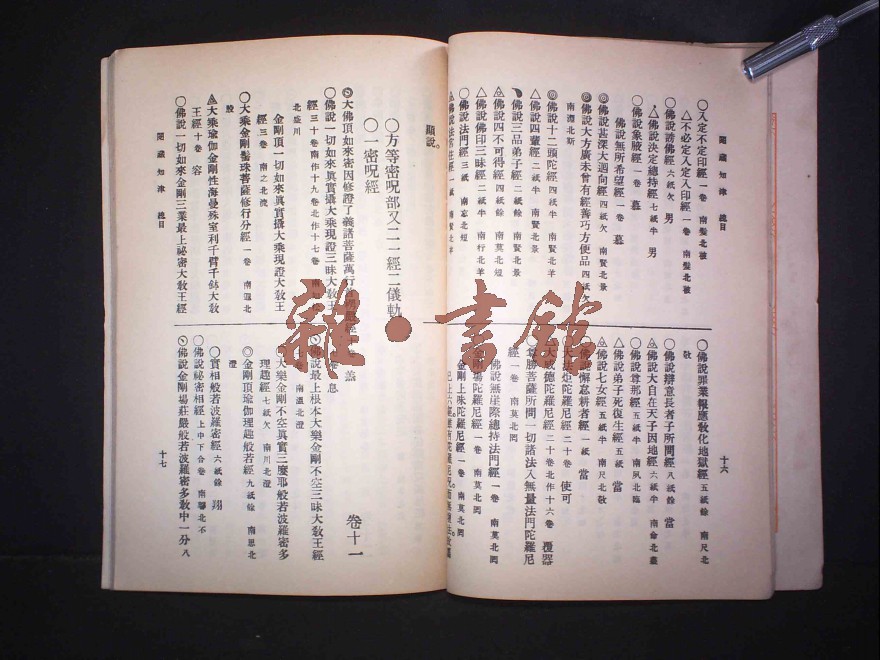 閱藏知津 總目
○入定不定印經一卷 南髮北被
△不必定入定入印經一卷 南髮北被
○佛說謗佛經六紙欠 男
△佛說決定總持經七紙半 男
○佛說象腋經一卷 慕
佛說無所希望經一卷 慕
◎佛說甚深大迴向經四紙欠 南賢北景
◎佛說大方廣未曾有經善巧方便品四紙欠
○佛說十二頭陀經四紙半 南賢北羊
△佛說四輩經二紙半 南賢北羊
佛說三品弟子經二紙餘 南賢北景
佛說四不可得經四紙餘
△佛說佛印三昧經二紙半 南行北羊
○佛說法門經三紙
佛說法常住經一紙
顯說。
○佛說罪業報應敎化地獄經五紙餘 南尺北
敬
○佛說辯意長者子所問經八紙餘 當
佛說大自在天子因地經六紙半 南命北盡
○佛說尊那經五紙半 南夙北臨
△佛說弟子死復生經五紙 當
佛說七女經五紙半 南尺北敬
佛說懈怠耕者經一紙 當
大法炬陀羅尼經二十卷 使可
大威德陀羅尼經二十卷北作十六卷 覆器
尊勝菩薩所問一切諸法入無量法門陀羅尼
經一卷 南莫北罔
佛說無崖際總持法門經一卷 南莫北罔
金剛場陀羅尼經一卷 南莫北罔
金剛上味陀羅尼經一卷 南莫北罔
十六
○方等密呪部又二一經二儀軌
○一密呪經
卷十一
◎大佛頂如來密因修證了義諸菩薩萬行首楞嚴經
○佛說一切如來眞實攝大乘現證三昧大敎王
經三十卷南作十九卷北作十七卷
金剛頂一切如來眞實攝大乘現證大敎王
經三卷
○大乘金剛髻珠菩薩修行分經一卷
大乘瑜伽金剛性海曼殊室利千臂千鉢大敎
王經十卷 容
○佛說一切如來金剛三業最上祕密大敎王經
閱藏知津 總目
佛說最上根本大樂金剛不空三昧大敎王經
七卷 南溫北澄
大樂金剛不空眞實三麼耶般若波羅密多
理趣經七紙欠 南川北澄
◎金剛頂瑜伽理趣般若經九紙餘 南思北
澄
○實相般若波羅密經六紙餘 翔
○佛說祕密相經上中下合卷
佛說金剛場莊嚴般若波羅密多敎中一分八
十七
雜·書館